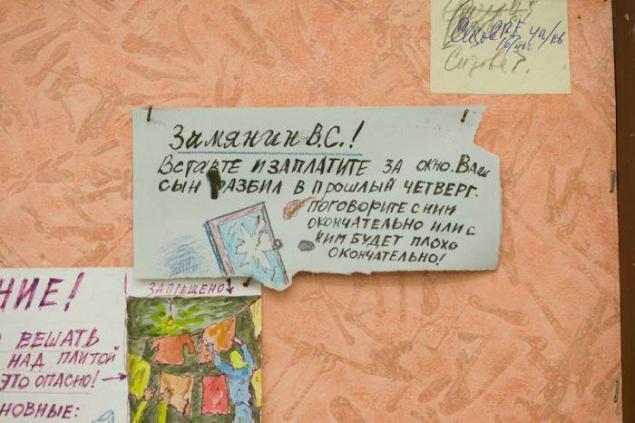 ча/кв
Сизова Г.
Замянин В.С.!
Вставте и заплатите за окно. Ваш
сын разбил в прошлый четверг.
поговорите с ним
окончательно или с
ним будет плохо
окончательно!
НИЕ!
ВЕШАТЬ
НАД ПЛИТОЙ
ЭТО ОПАСНО!
НОВНЫЕ:
ЗАПРЕЩЕНО